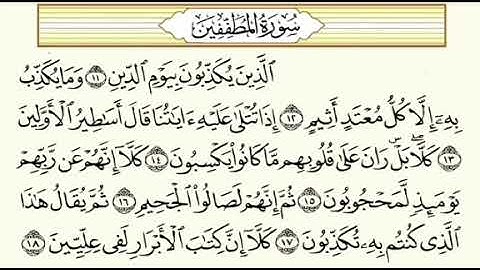 سُورَةُ المُطَفِّفِينَ
الَّذِينَ يُكَذِّبُونَ بِيَوْمِ الدِّينِ ۝١١ وَمَا يُكَذِّبُ
بِهِۦٓ إِلَّا كُلُّ مُعْتَدٍ أَثِيمٍ ۝١٢ إِذَا تُتْلَىٰ عَلَيْهِ ءَايَٰتُنَا قَالَ أَسَٰطِيرُ الْأَوَّلِينَ
۝١٣ كَلَّا ۖ بَلْ ۜ رَانَ عَلَىٰ قُلُوبِهِم مَّا كَانُوا۟ يَكْسِبُونَ ۝١٤ كَلَّآ إِنَّهُمْ عَن رَّبِّهِمْ
يَوْمَئِذٍ لَّمَحْجُوبُونَ ۝١٥ ثُمَّ إِنَّهُمْ لَصَالُوا۟ الْجَحِيمِ ۝١٦ ثُمَّ يُقَالُ هَٰذَا
الَّذِى كُنتُم بِهِۦ تُكَذِّبُونَ ۝١٧ كَلَّآ إِنَّ كِتَٰبَ الْأَبْرَارِ لَفِى عِلِّيِّينَ ۝١٨